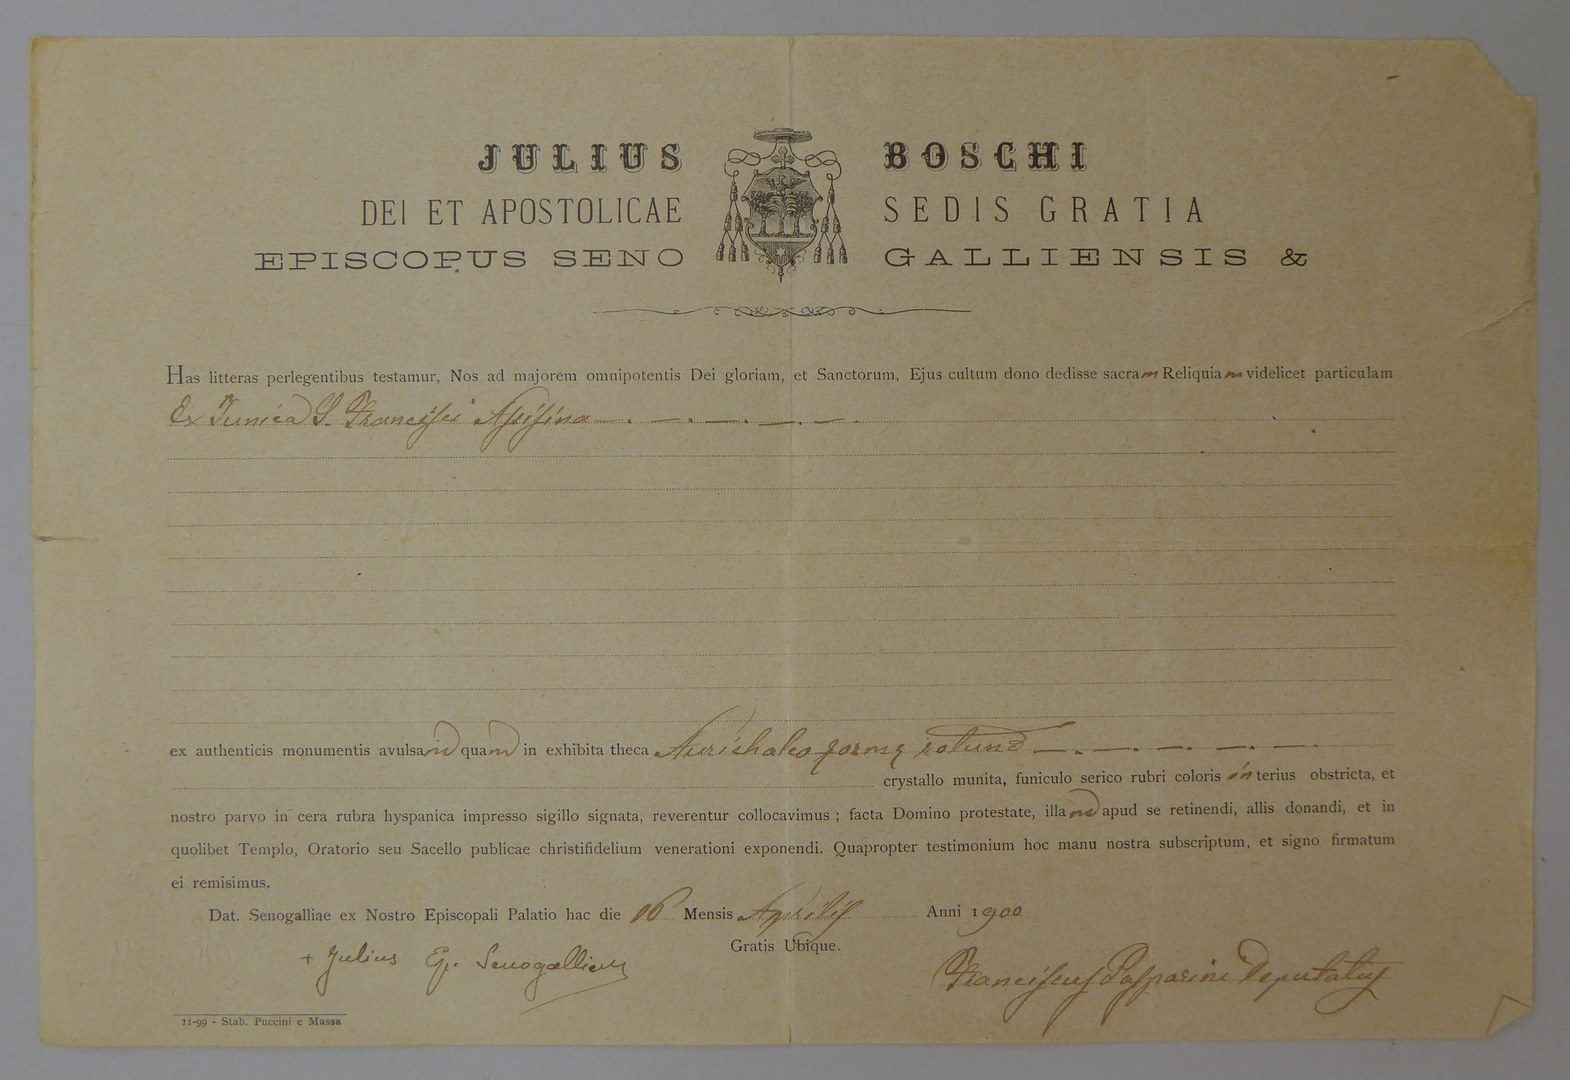 JULIUS BOSCHI
DEI ET APOSTOLICAE SEDIS GRATIA
EPISCOPUS SENO GALLIENSIS &
Has litteras perlegentibus testamur, Nos ad majorem omnipotentis Dei gloriam, et Sanctorum, Ejus cultum dono dedisse sacram Reliquiam videlicet particulam
Ex Tunica S. Francisci
ex authenticis monumentis avulsam quam in exhibita theca Aurichalco formę rotund
crystallo munita, funiculo serico rubri coloris interius obstricta, et
nostro parvo in cera rubra hyspanica impresso sigillo signata, reverentur collocavimus ; facta Domino protestate, illam apud se retinendi, allis donandi, et in
quolibet Templo, Oratorio seu Sacello publicae christifidelium venerationi exponendi. Quapropter testimonium hoc manu nostra subscriptum, et signo firmatum
ei remisimus.
Dat. Senogalliae ex Nostro Episcopali Palatio hac die 16 Mensis Aprilis Anni 1900
Gratis Ubique.
+ Julius Ep. Senogallien
Franciscus Gasparini Deputatus
11-99 - Stab. Puccini e Massa